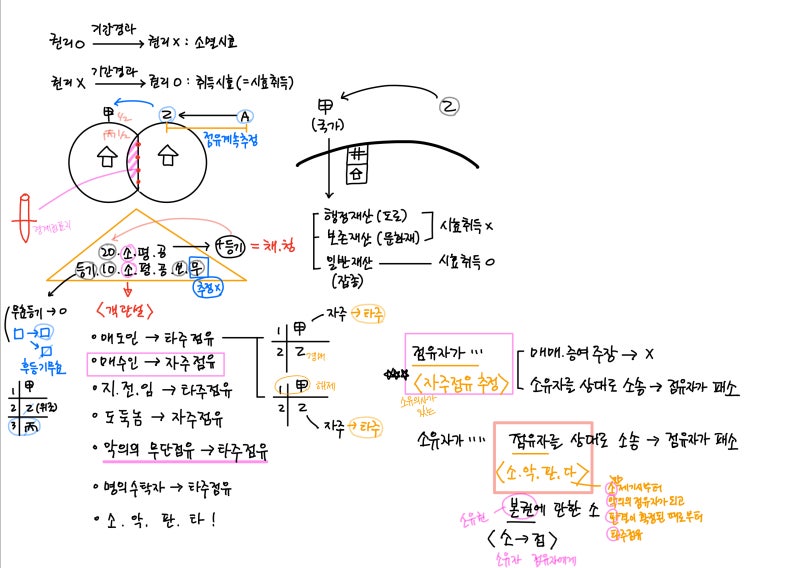 권리O 기간경과 권리X : 소멸시효
권리X 기간경과 권리O : 취득시효(=시효취득)
甲 1/2
丙 1/2
乙
A
점유계속추정
경계표지
甲
(국가)
乙
행정재산(도로)
보존재산(문화재)
시효취득X
일반재산 시효취득O
(잡종)
20. 소. 평. 공 +등기 = 채.청
등기. 10. 소. 평. 공. 선. 무
추정X
무효등기→O
후등기무효
1 甲
2 乙(위조)
3 丙
<객관설>
• 매도인 → 타주점유
• 매수인 → 자주점유
• 지. 전. 임 → 타주점유
• 도둑놈 → 자주점유
• 악의의 무단점유 → 타주점유
• 명의수탁자 → 타주점유
• 소. 악. 판. 타!
1 甲
2 乙
경매
자주→타주
1 甲
2 乙
해제
자주→타주
점유자가 …
<자주점유 추정>
소유의사가
있는
매매.증여주장 → X
소유자를 상대로 소송 → 점유자가 패소
소유자가 …. 점유자를 상대로 소송 → 점유자가 패소
<소.악.판.타>
소제기시부터
악의의 점유자가 되고
판결이 확정된 때로부터
타주점유
소유권
본권에 관한 소
<소→점>
소유자 점유자에게